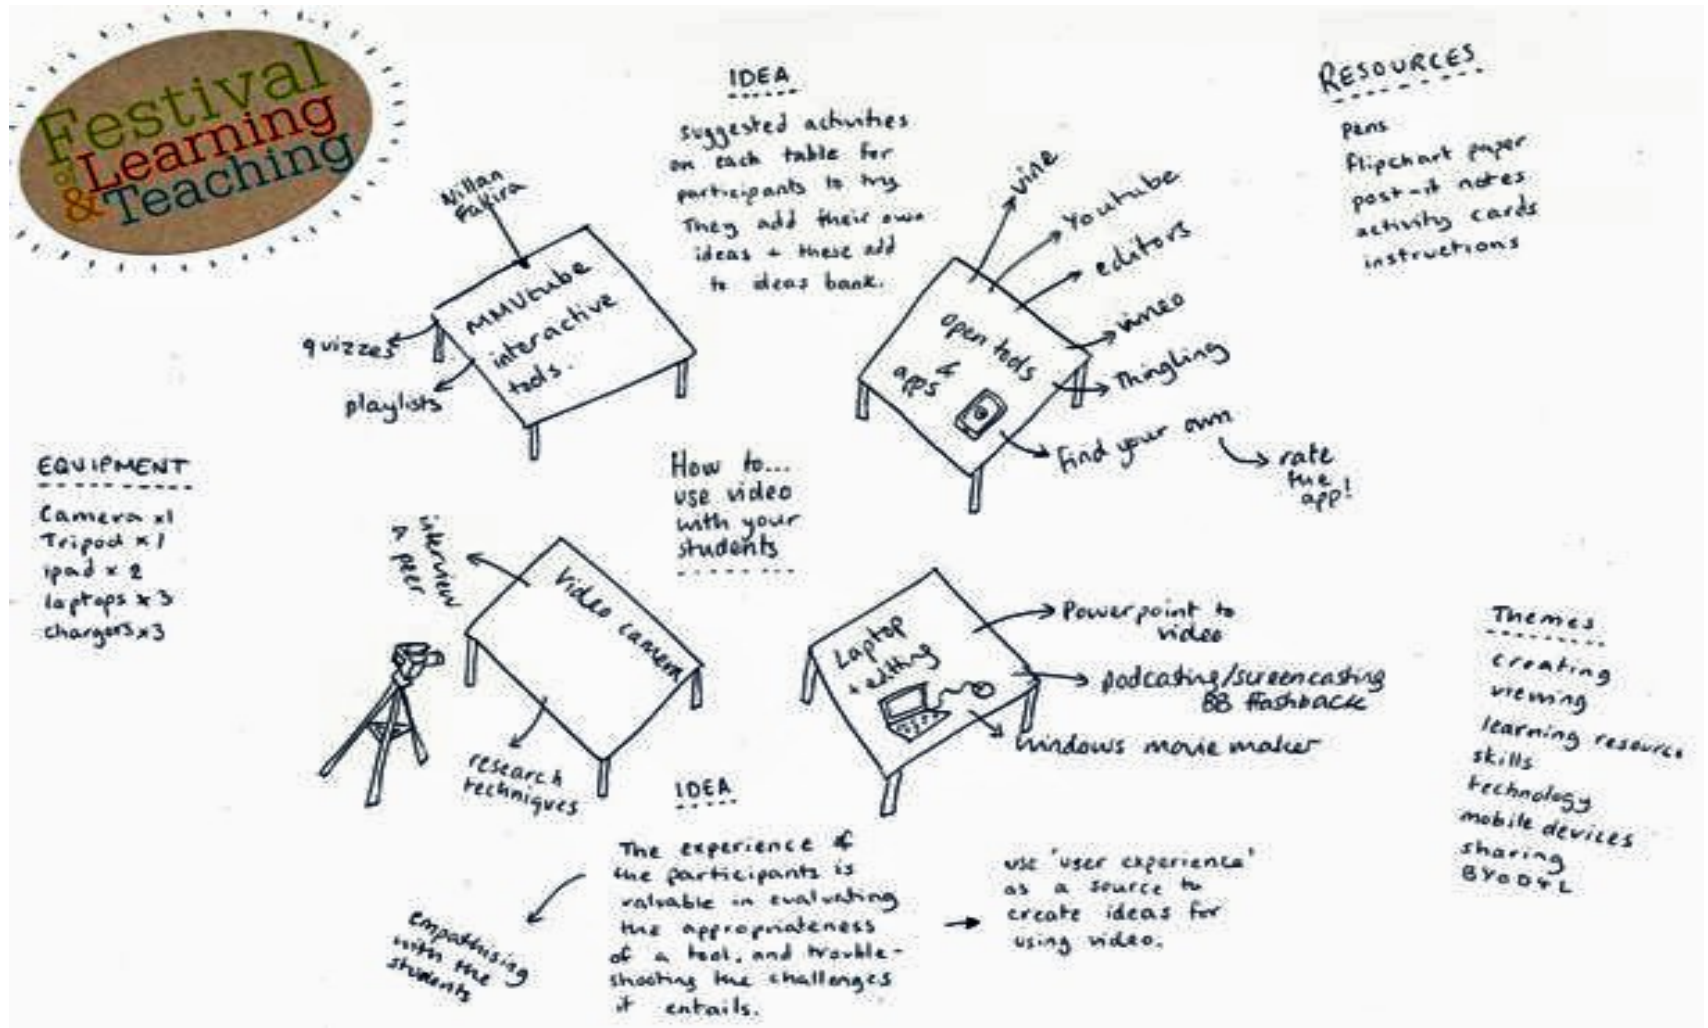 Festival
of Learning
& Teaching
IDEA
suggested activities
on each table for
participants to try
They add their own
ideas + these add
to ideas bank.
RESOURCES
pens
flipchart paper
post-it notes
activity cards
instructions
Fakira
MMUtube
interactive
tools.
quizzes
playlists
vine
Youtube
editors
vimeo
Thingling
find your own
rate
the
app!
open tools
&
apps
EQUIPMENT
Camera x1
Tripod x1
ipad x 2
laptops x 3
chargers x3
How to...
use video
with your
students
interview
a peer
Video camera
research
techniques
Laptop
+ editing
Powerpoint to
video
podcasting/screencasting
BB flashback
windows movie maker
Themes
creating
viewing
learning resource
skills
technology
mobile devices
sharing
BYOD4L
IDEA
The experience of
the participants is
valuable in evaluating
the appropriateness
of a tool, and trouble-
shooting the challenges
it entails.
empathising
with the
students
use 'user experience'
as a source to
create ideas for
using video.